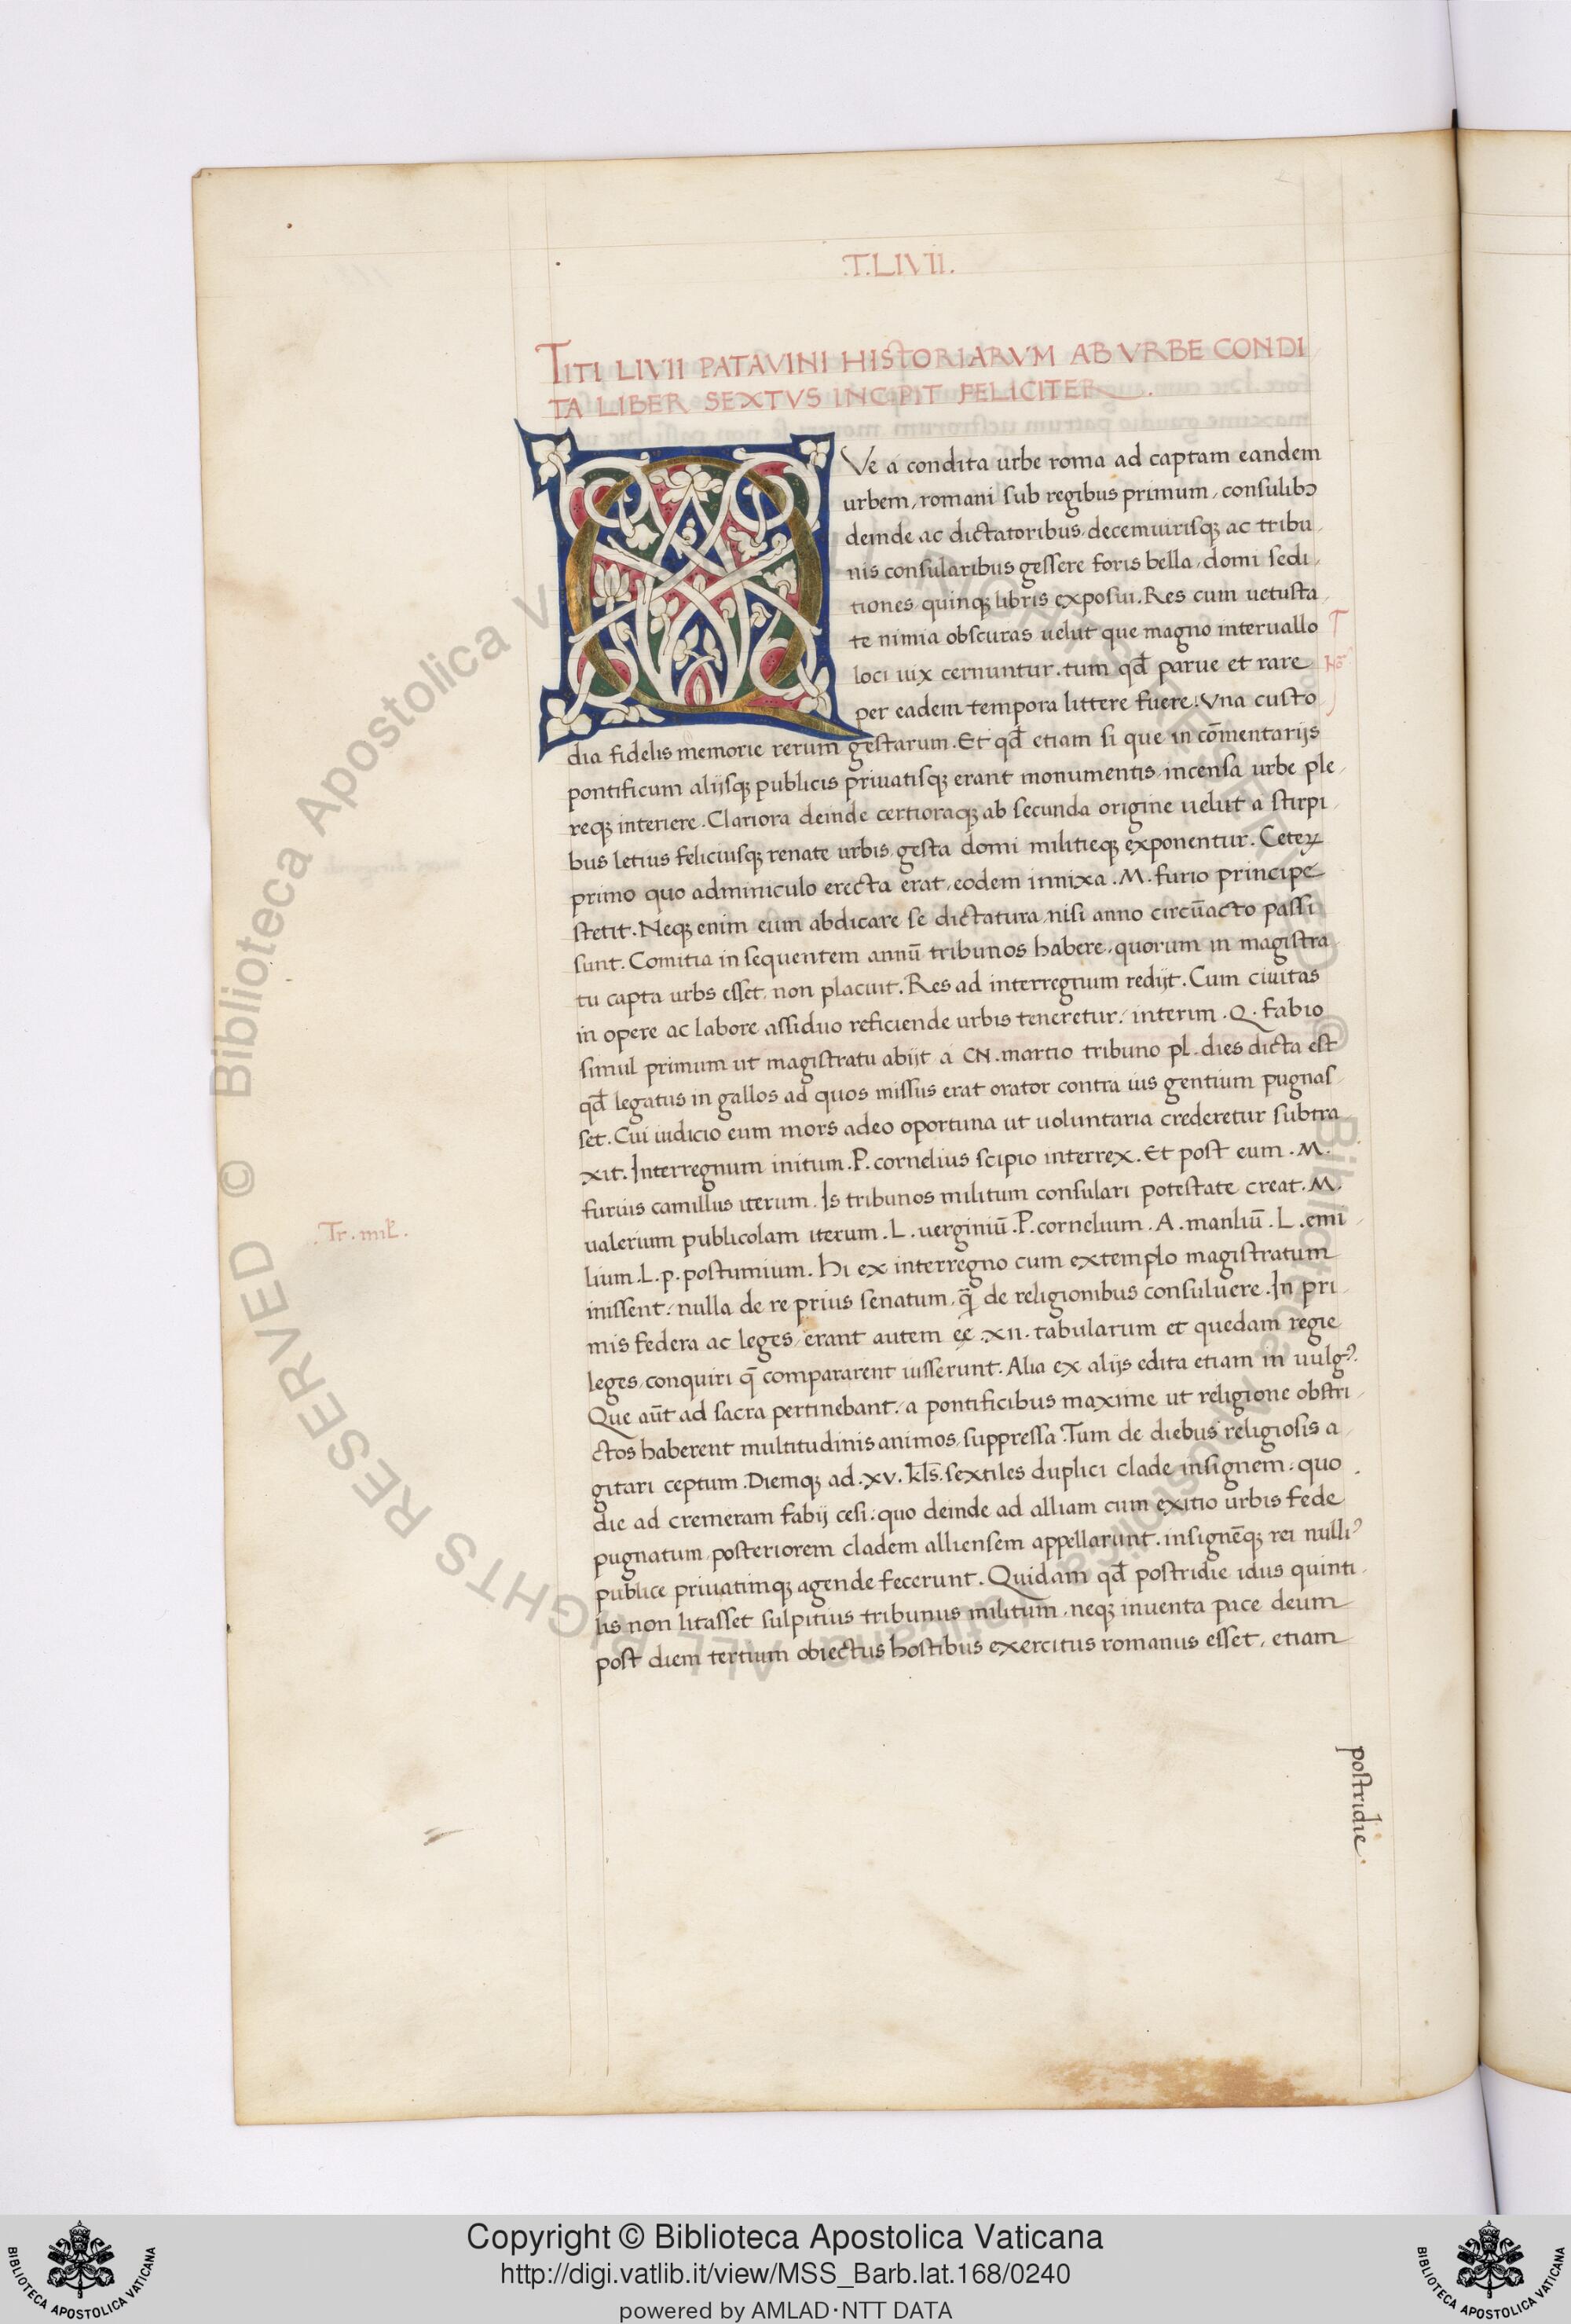 .T.LIVII.
TITI LIVII PATAVINI HISTORIARVM AB VRBE CONDI
TA LIBER SEXTVS INCIPIT FELICITER.
QVe a condita urbe roma ad captam eandem
urbem, romani sub regibus primum, consulibꝰ
deinde ac dictatoribus, decemuirisqꝫ ac tribu,
nis consularibus gessere foris bella, domi sedi,
tiones, quinqꝫ libris exposui. Res cum uetusta,
te nimia obscuras uelut que magno interuallo
loci uix cernuntur. tum qđ parue et rare
per eadem tempora littere fuere. Vna custo
dia fidelis memorie rerum gestarum. Et qđ etiam si que in cōmentarijs
pontificum alijsqꝫ publicis priuatisqꝫ erant monumentis, incensa urbe ple,
reqꝫ interiere. Clariora deinde certioraqꝫ ab secunda origine uelut a stirpi,
bus letius feliciusqꝫ renate urbis, gesta domi militieqꝫ exponentur. Ceteꝝ
primo quo adminiculo erecta erat, eodem innixa .M. furio principe
stetit. Neqꝫ enim eum abdicare se dictatura, nisi anno circūacto passi
sunt. Comitia in sequentem annū tribunos habere, quorum in magistra
tu capta urbs esset, non placuit. Res ad interregnum redijt. Cum ciuitas
in opere ac labore assiduo reficiende urbis teneretur: interim .Q. fabio
simul primum ut magistratu abijt a CN. martio tribuno pl. dies dicta est
qđ legatus in gallos ad quos missus erat orator contra ius gentium pugnas,
set. Cui iudicio eum mors adeo oportuna ut uoluntaria crederetur subtra
xit. Interregnum initum. P. cornelius scipio interrex. Et post eum .M.
furius camillus iterum. Is tribunos militum consulari potestate creat. M.
ualerium publicolam iterum. L. uerginiū. P. cornelium. A. manliū. L. emi,
lium. L. p. postumium. Hi ex interregno cum extemplo magistratum
inissent: nulla de re prius senatum, q̄ de religionibus consuluere. In pri,
mis federa ac leges, erant autem eę .XII. tabularum et quedam regie
leges, conquiri q̄ compararent iusserunt. Alia ex alijs edita etiam in uulgꝰ.
Que aūt ad sacra pertinebant: a pontificibus maxime ut religione obstri,
ctos haberent multitudinis animos, suppressa. Tum de diebus religiosis a,
gitari ceptum. Diemqꝫ ad .XV. kls̄. sextiles duplici clade insignem: quo
die ad cremeram fabij cesi: quo deinde ad alliam cum exitio urbis fede
pugnatum, posteriorem cladem alliensem appellarunt. insignēqꝫ rei nulliꝰ
publice priuatimqꝫ agende fecerunt. Quidam qđ postridie idus quinti,
lis non litasset sulpitius tribunus militum, neqꝫ inuenta pace deum
post diem tertium obiectus hostibus exercitus romanus esset, etiam
postridie.
Nō
.Tr. mil̄.
© Biblioteca Apostolica Vaticana ALL RIGHTS RESERVED
Copyright © Biblioteca Apostolica Vaticana
http://digi.vatlib.it/view/MSS_Barb.lat.168/0240
powered by AMLAD·NTT DATA
BIBLIOTECA APOSTOLICA VATICANA
BIBLIOTECA APOSTOLICA VATICANA